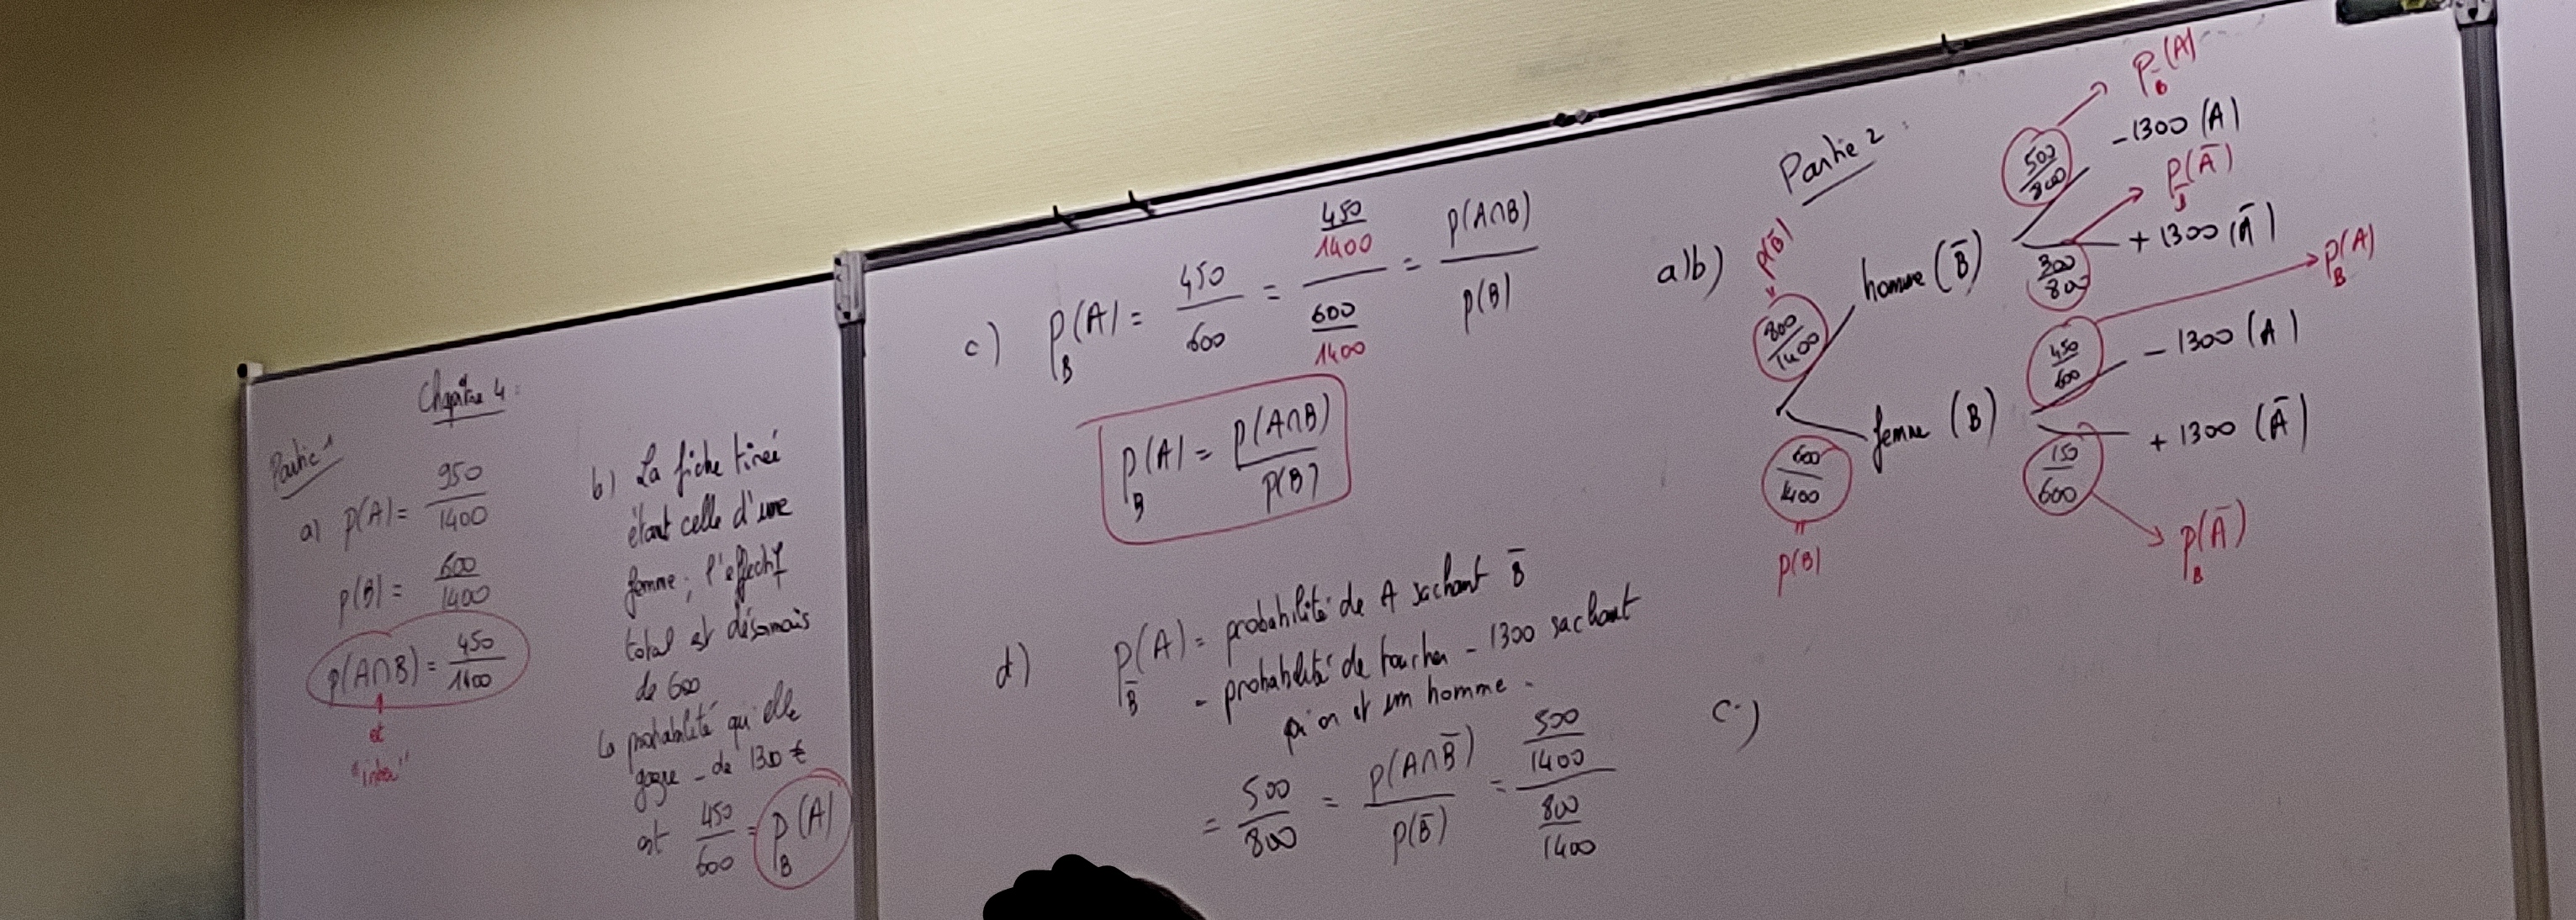 Chapitre 4 :
Partie 1
a) p(A) = 950/1400
p(B) = 600/1400
p(A∩B) = 450/1400
et
"inter"
b) La fiche tirée
étant celle d'une
femme, l'effectif
total est désormais
de 600
la probabilité qu'elle
gagne - de 1300 €
est 450/600 = p_B(A)
c) p_B(A) = 450/600 = (450/1400)/(600/1400) = p(A∩B)/p(B)
p_B(A) = p(A∩B)/p(B)
d) p_B̄(A) = probabilité de A sachant B̄
= probabilité de toucher - 1300 sachant
qu'on est un homme.
= 500/800 = p(A∩B̄)/p(B̄) = (500/1400)/(800/1400)
Partie 2 :
a)b)
p(B̄)
800/1400
homme (B̄)
500/800
p_B̄(A)
- 1300 (A)
300/800
p_B̄(Ā)
+ 1300 (Ā)
600/1400
p(B)
femme (B)
450/600
p_B(A)
- 1300 (A)
150/600
+ 1300 (Ā)
p_B(Ā)
c.)